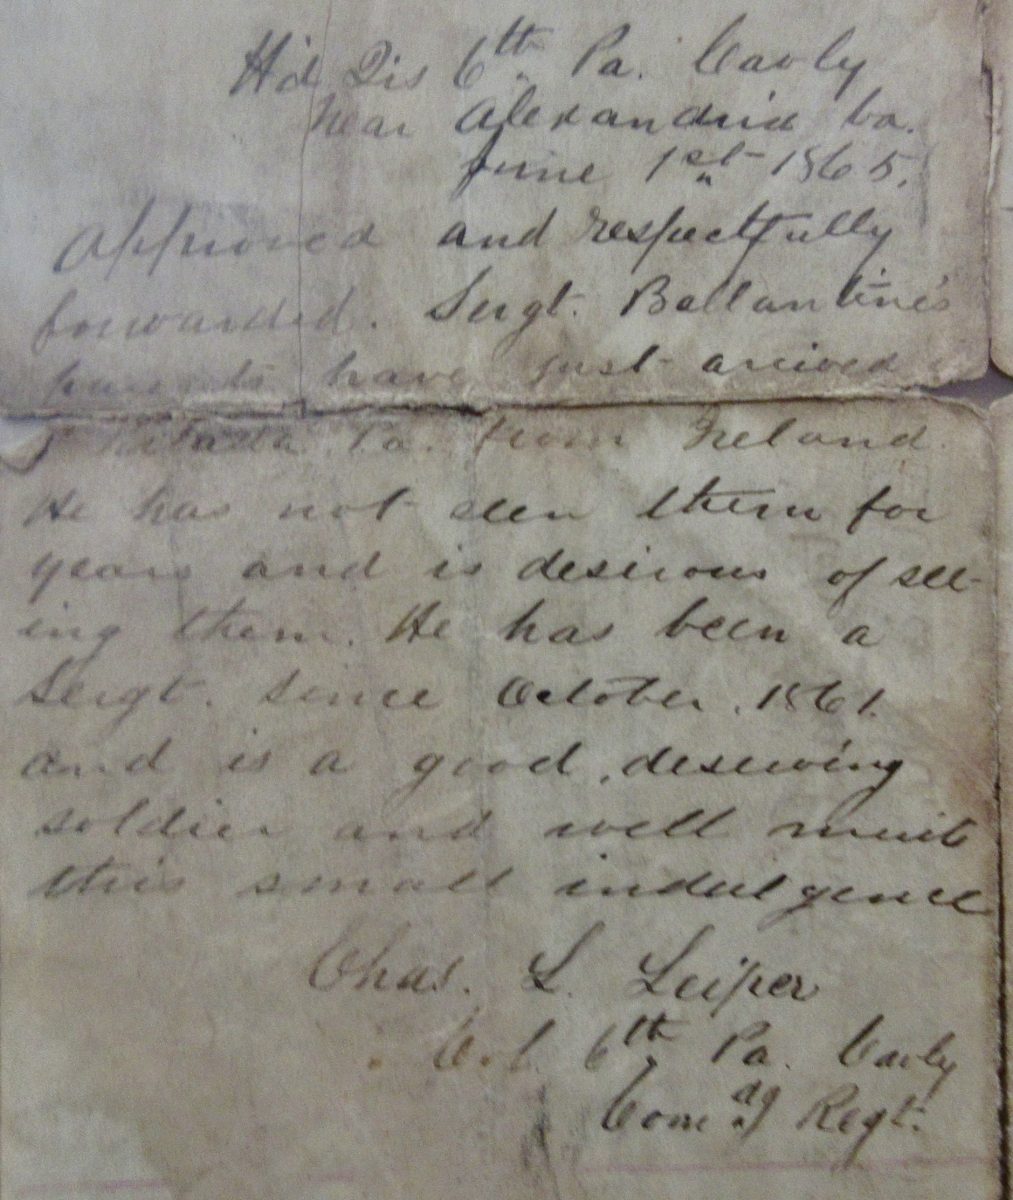 Hd Qrs 6th Pa. Cavly
Near Alexandria Va.
June 1st 1865.
Approved and respectfully
forwarded. Sergt. Ballantine's
parents have just arrived
Pa. from Ireland.
He has not seen them for
years and is desirous of see-
ing them. He has been a
Sergt. since October, 1861.
and is a good, deserving
soldier and well merits
this small indulgence
Chas. L. Leiper
Col. 6th Pa. Cavly
Comdg Regt.